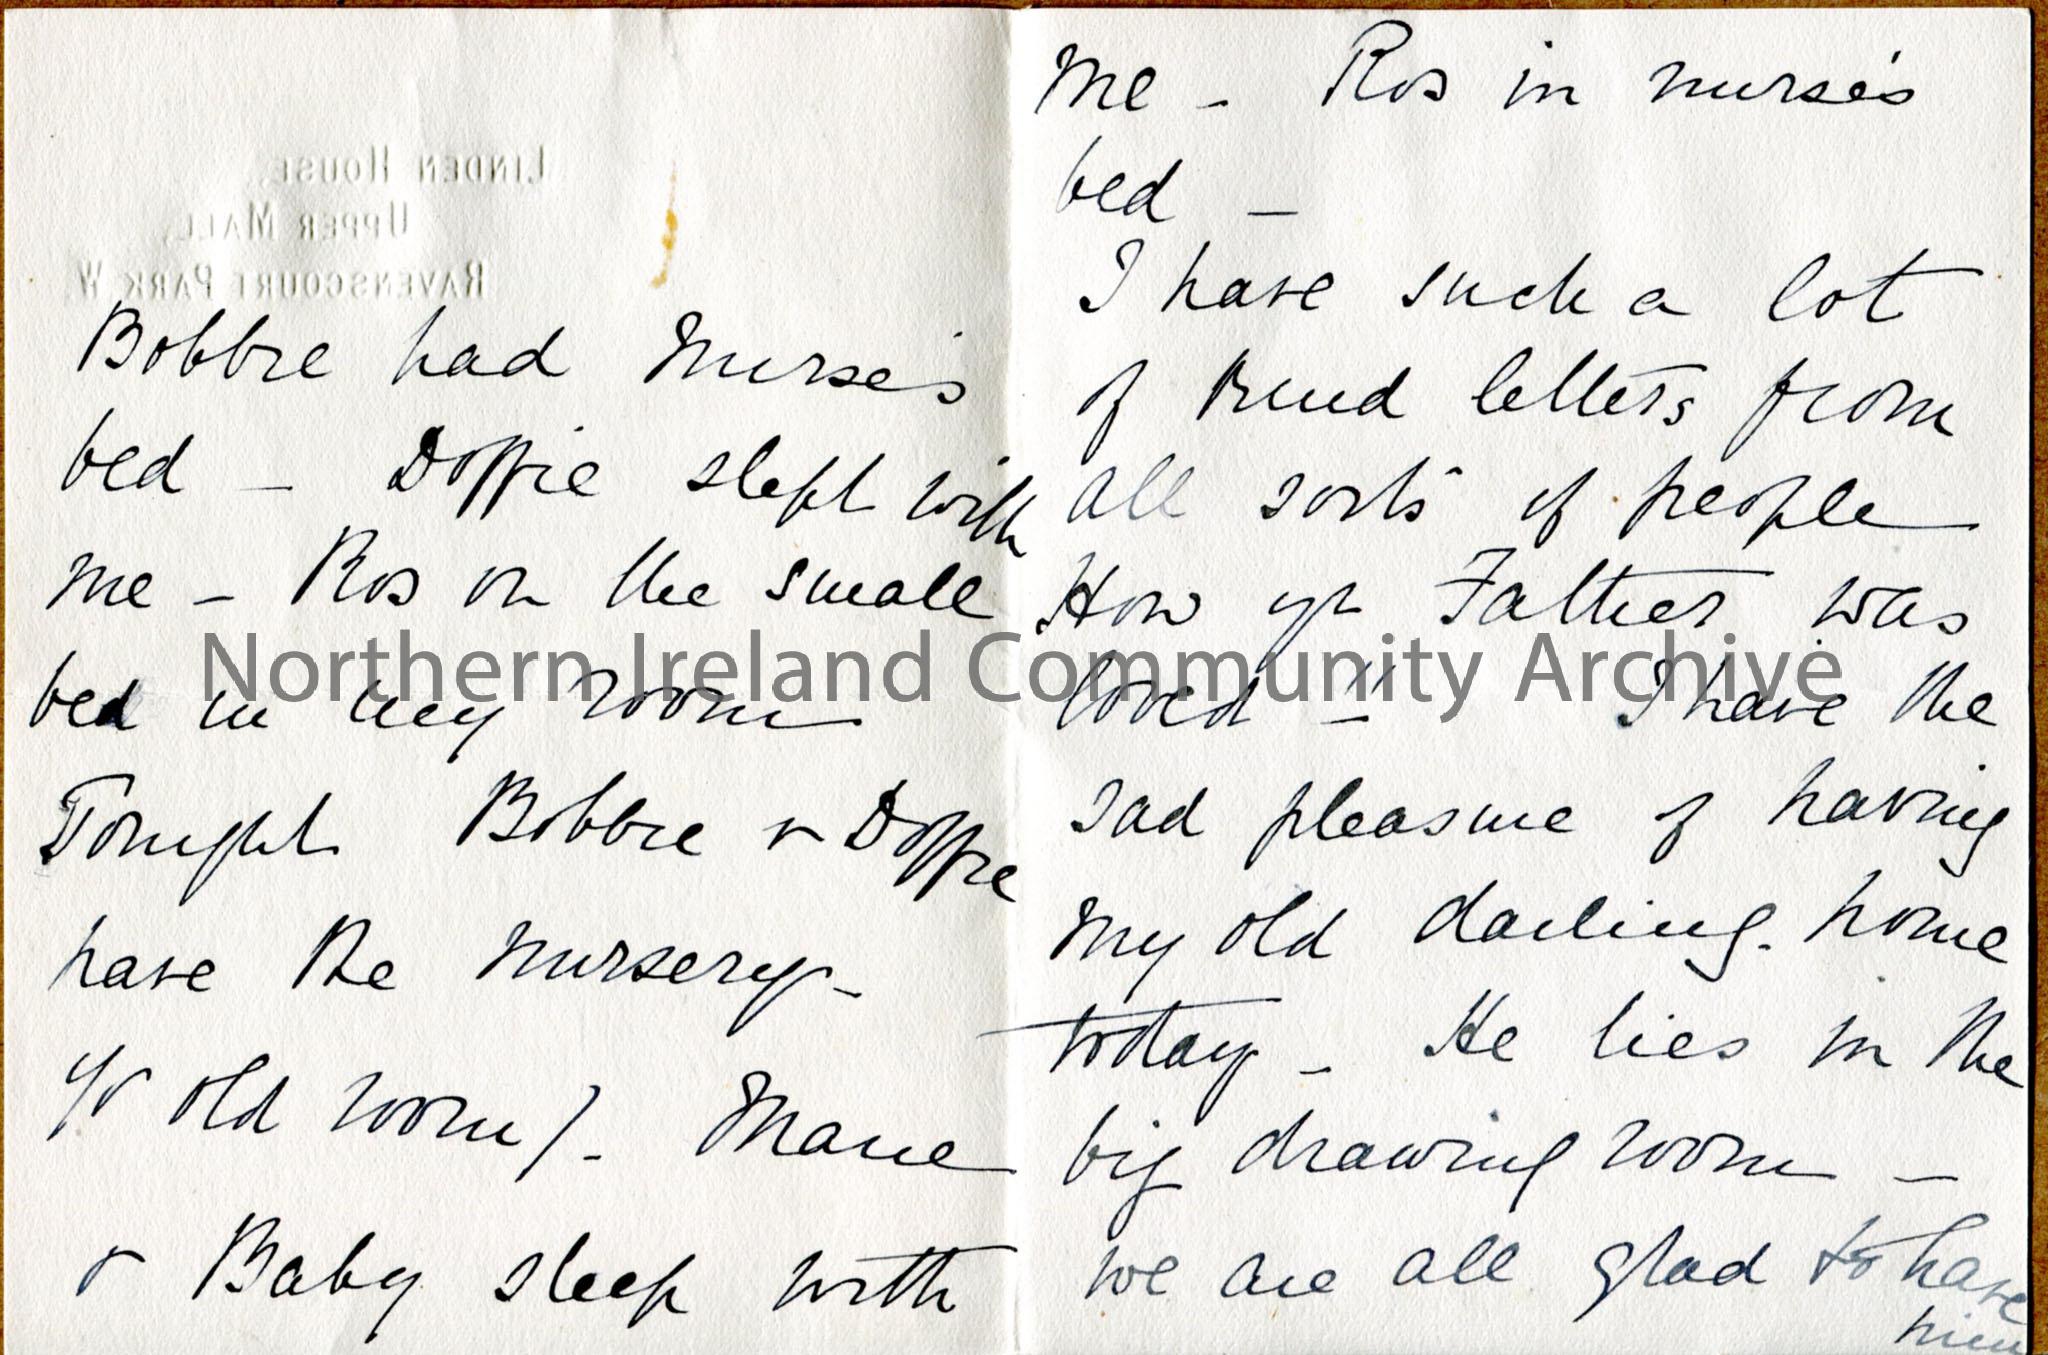 LINDEN HOUSE,
UPPER MALL,
RAVENSCOURT PARK. W.
Bobbie had Nurse's
bed – Doffie slept with
me – Ros on the small
bed in my room
Tonight Bobbie & Doffie
have the nursery –
(yr old room) – Marie
& Baby sleep with
me – Ros in nurse's
bed –
I have such a lot
of kind letters from
all sorts of people
How yr Father was
loved !! I have the
sad pleasure of having
my old darling. home
today – He lies in the
big drawing room –
we are all glad to have
him
Northern Ireland Community Archive